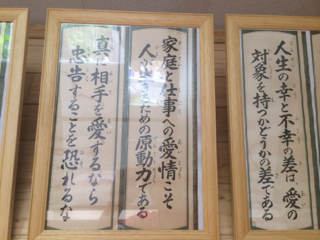 人生の幸と不幸の差は愛の
対象を持つかどうかの差である
家庭と仕事への愛情こそ
人が生きるための原動力である
真に相手を愛するなら
忠告することを恐れるな